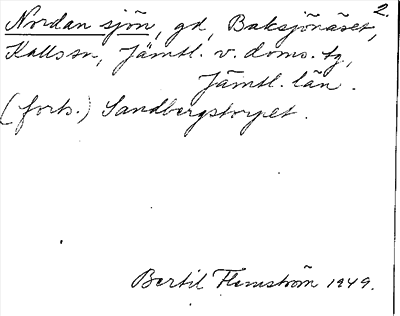 2.
Nordan sjön, gd, Baksjönäset,
Kalls sn, Jämtl. v. doms. tg,
Jämtl. län.
(forts.) Sandbergstorpet.
Bertil Flemström 1949.